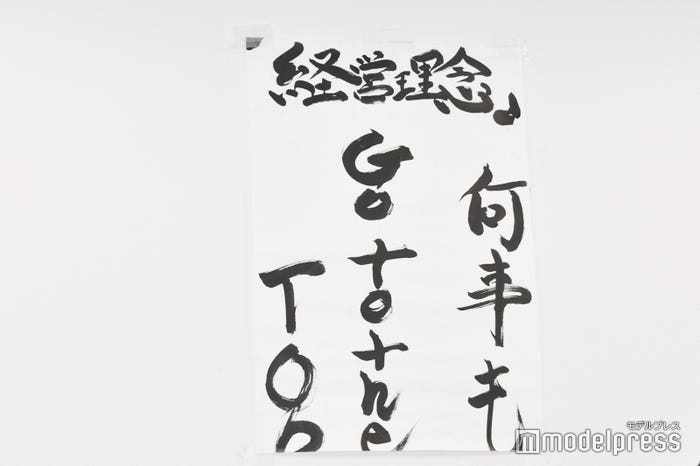 経営理念
何事も
Go to the
TOP
モデルプレス
modelpress